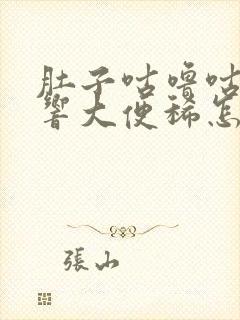 肚子咕噜咕
响大便稀怎
張山